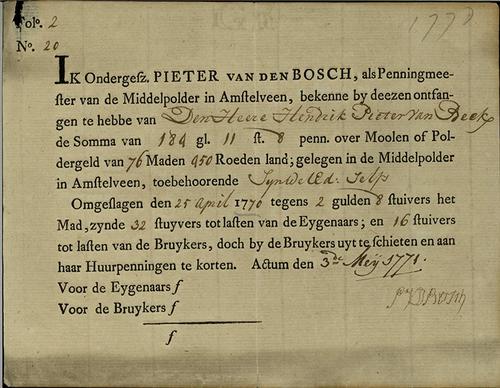 Folo. 2
1770
No. 20
IK Ondergesz. PIETER VAN DEN BOSCH, als Penningmee-
ster van de Middelpolder in Amstelveen, bekenne by deezen ontfan-
gen te hebbe van Den Heere Hendrik Pieter van Beek
de Somma van 184 gl. 11 st. 8 penn. over Moolen of Pol-
dergeld van 76 Maden 450 Roeden land; gelegen in de Middelpolder
in Amstelveen, toebehoorende Syn WelEd. Selfs
Omgeslagen den 25 April 1770 tegens 2 gulden 8 stuivers het
Mad, zynde 32 stuyvers tot lasten van de Eygenaars; en 16 stuivers
tot lasten van de Bruykers, doch by de Bruykers uyt te schieten en aan
haar Huurpenningen te korten. Actum den 3de Mey 1771.
Voor de Eygenaars f
Voor de Bruykers f
f